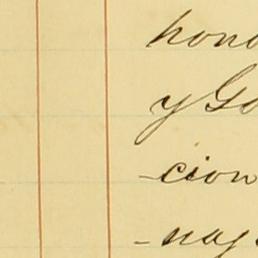 hono
y Go
-cion
-nag